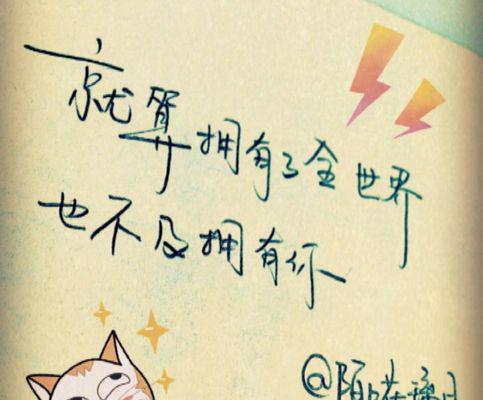 就算拥有了全世界
也不及拥有你
@陌上花